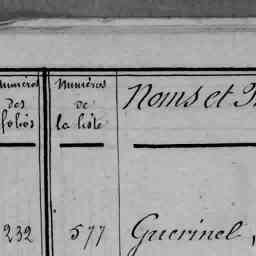 Numéros
des
folios
Numéros
de
la liste
Noms et
232
577
Guerinel,